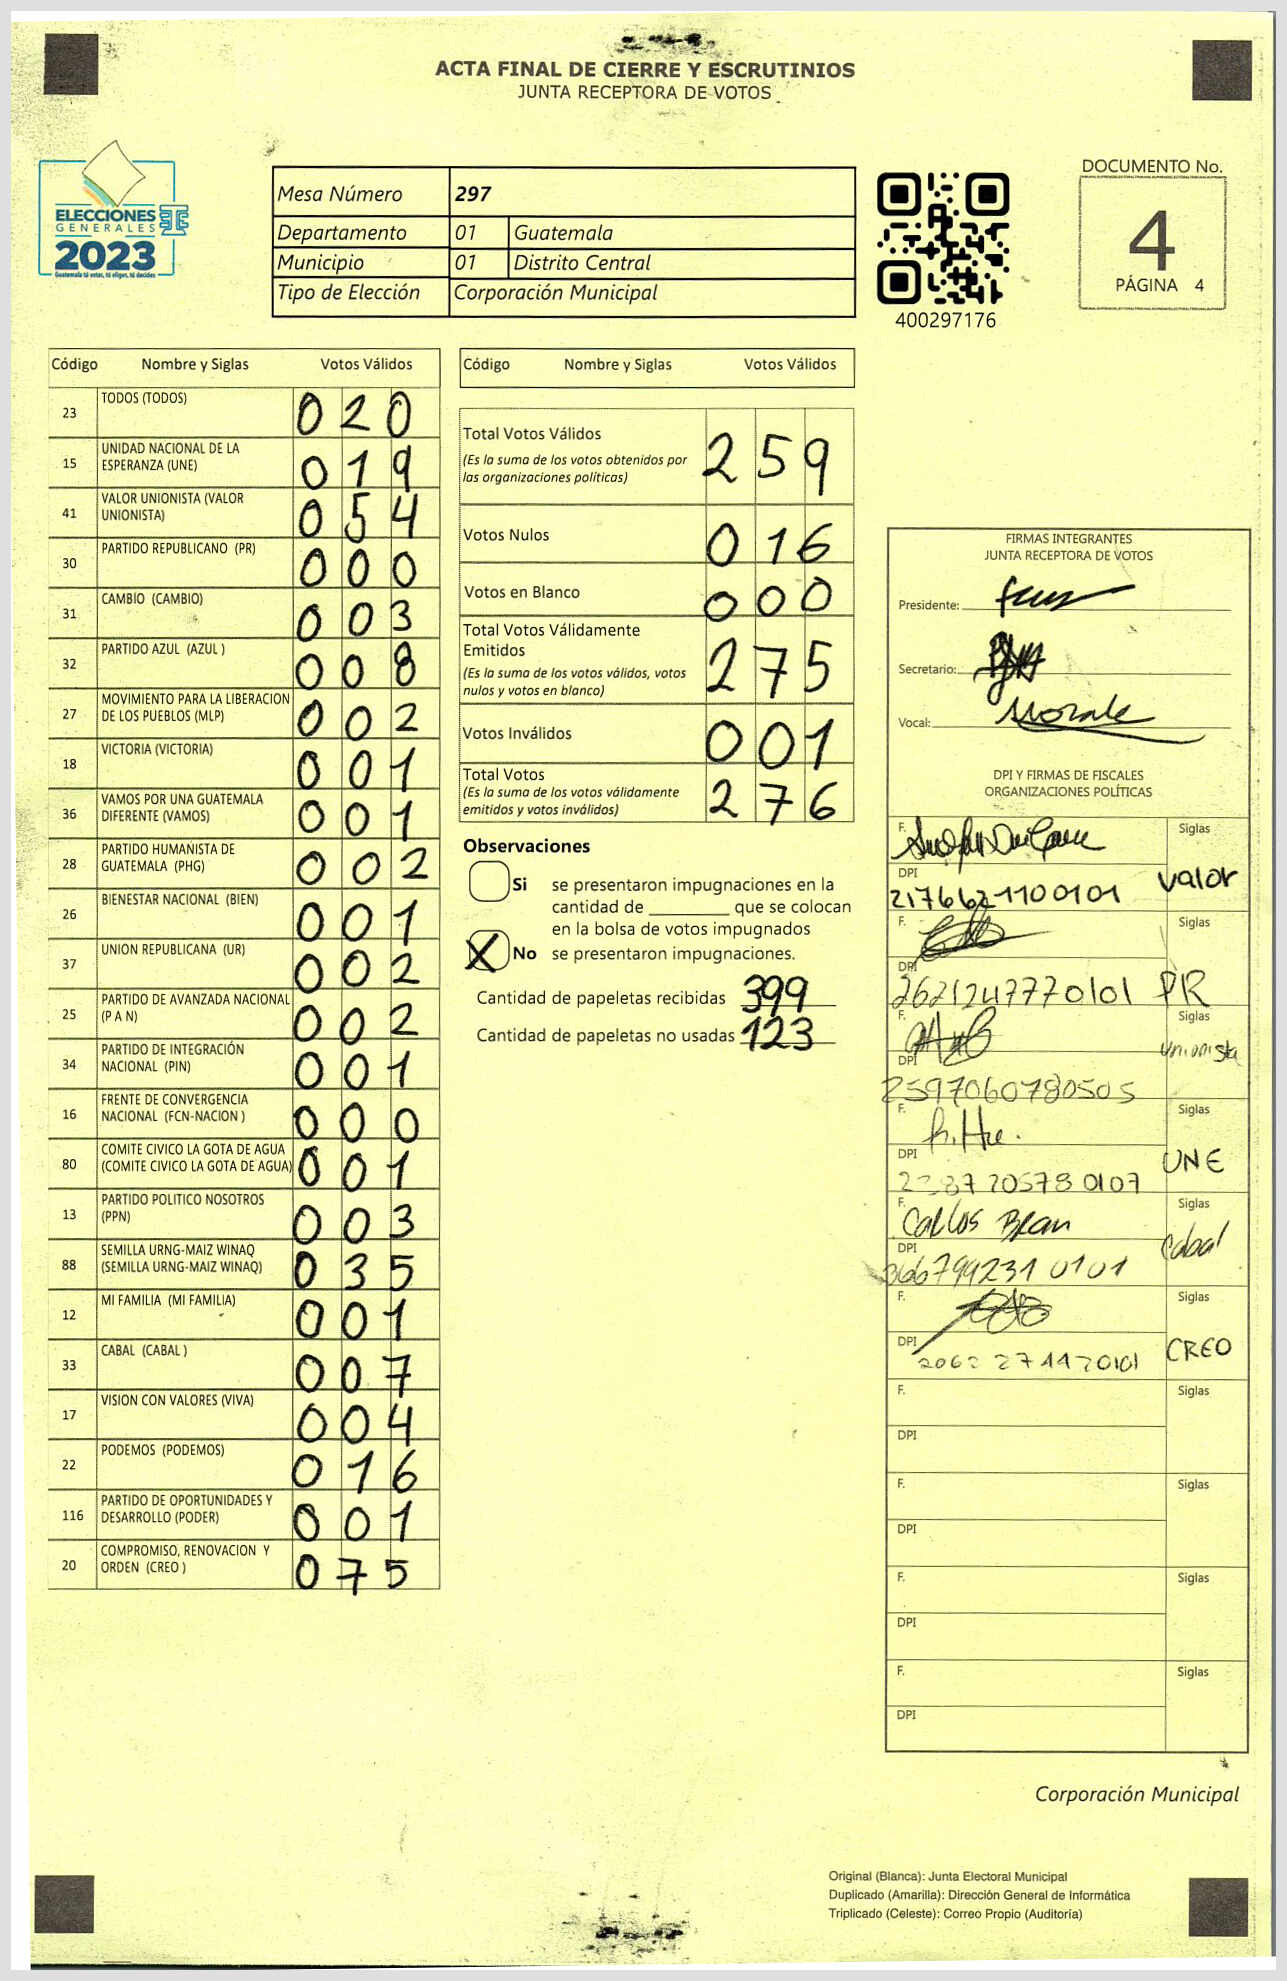 ACTA FINAL DE CIERRE Y ESCRUTINIOS
JUNTA RECEPTORA DE VOTOS
ELECCIONES
GENERALES
2023
Guatemala tú votas, tú eliges, tú decides
Mesa Número 297
Departamento 01 Guatemala
Municipio 01 Distrito Central
Tipo de Elección Corporación Municipal
400297176
DOCUMENTO No.
4
PÁGINA 4
Código Nombre y Siglas Votos Válidos
23 TODOS (TODOS) 020
15 UNIDAD NACIONAL DE LA
ESPERANZA (UNE) 019
41 VALOR UNIONISTA (VALOR
UNIONISTA) 054
30 PARTIDO REPUBLICANO (PR) 000
31 CAMBIO (CAMBIO) 003
32 PARTIDO AZUL (AZUL ) 008
27 MOVIMIENTO PARA LA LIBERACION
DE LOS PUEBLOS (MLP) 002
18 VICTORIA (VICTORIA) 001
36 VAMOS POR UNA GUATEMALA
DIFERENTE (VAMOS) 001
28 PARTIDO HUMANISTA DE
GUATEMALA (PHG) 002
26 BIENESTAR NACIONAL (BIEN) 001
37 UNION REPUBLICANA (UR) 002
25 PARTIDO DE AVANZADA NACIONAL
(P A N) 002
34 PARTIDO DE INTEGRACIÓN
NACIONAL (PIN) 001
16 FRENTE DE CONVERGENCIA
NACIONAL (FCN-NACION ) 000
80 COMITE CIVICO LA GOTA DE AGUA
(COMITE CIVICO LA GOTA DE AGUA) 001
13 PARTIDO POLITICO NOSOTROS
(PPN) 003
88 SEMILLA URNG-MAIZ WINAQ
(SEMILLA URNG-MAIZ WINAQ) 035
12 MI FAMILIA (MI FAMILIA) 001
33 CABAL (CABAL ) 007
17 VISION CON VALORES (VIVA) 004
22 PODEMOS (PODEMOS) 016
116 PARTIDO DE OPORTUNIDADES Y
DESARROLLO (PODER) 001
20 COMPROMISO, RENOVACION Y
ORDEN (CREO ) 075
Código Nombre y Siglas Votos Válidos
Total Votos Válidos 259
(Es la suma de los votos obtenidos por
las organizaciones políticas)
Votos Nulos 016
Votos en Blanco 000
Total Votos Válidamente
Emitidos 275
(Es la suma de los votos válidos, votos
nulos y votos en blanco)
Votos Inválidos 001
Total Votos 276
(Es la suma de los votos válidamente
emitidos y votos inválidos)
Observaciones
Si se presentaron impugnaciones en la
cantidad de ________ que se colocan
en la bolsa de votos impugnados
X No se presentaron impugnaciones.
Cantidad de papeletas recibidas 399
Cantidad de papeletas no usadas 123
FIRMAS INTEGRANTES
JUNTA RECEPTORA DE VOTOS
Presidente:
Secretario:
Vocal:
DPI Y FIRMAS DE FISCALES
ORGANIZACIONES POLÍTICAS
F. Siglas
DPI valor
2176621100101
F. Siglas
DPI PR
2621247770101
F. Siglas
DPI Unionista
2597060780505
F. Siglas
DPI UNE
F. Carlos Bran Siglas
DPI Cabal
366799231 0101
F. Siglas
DPI CREO
F. Siglas
DPI
F. Siglas
DPI
F. Siglas
DPI
F. Siglas
DPI
Corporación Municipal
Original (Blanca): Junta Electoral Municipal
Duplicado (Amarilla): Dirección General de Informática
Triplicado (Celeste): Correo Propio (Auditoría)